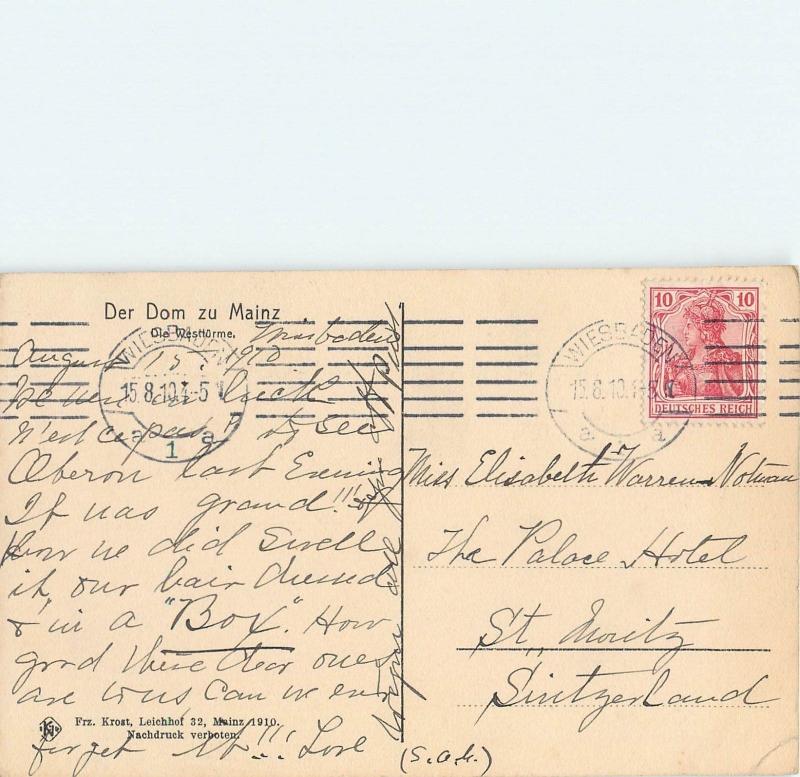 Der Dom zu Mainz
Die Westtürme.
Wiesbaden
August 15, 1910
We were in luck
n'est ce pas" to see
Oberon last Evening
It was grand!!!
how we did Swell
it, our hair dressed
& in a "Box". How
good these dear ones
are to us Can we ever
forget it!!! Love
Hope all
(S.A.K.)
WIESBADEN
15.8.10.4-5
a 1 a
WIESBADEN
15.8.10.4-5
a 1 a
10 10
DEUTSCHES REICH
Miss Elisabeth Warren Notman
The Palace Hotel
St. Moritz
Switzerland
Frz. Krost, Leichhof 32, Mainz 1910.
Nachdruck verboten.